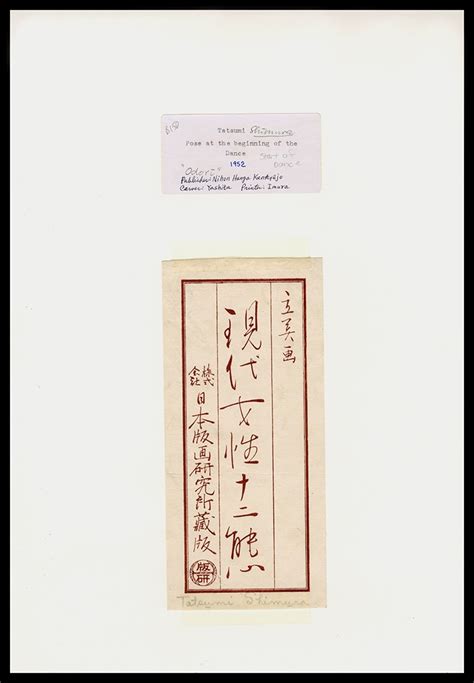 $150
Tatsumi Shimura
Pose at the beginning of the
Dance Start of
Dance
1952
"Odori"
Publisher: Nihon Hanga Kenkyujo
Carver: Yashita Printer: Imura
立美画
現代女性十二態
株式
会社
日本版画研究所蔵版
版研
Tatsumi Shimura